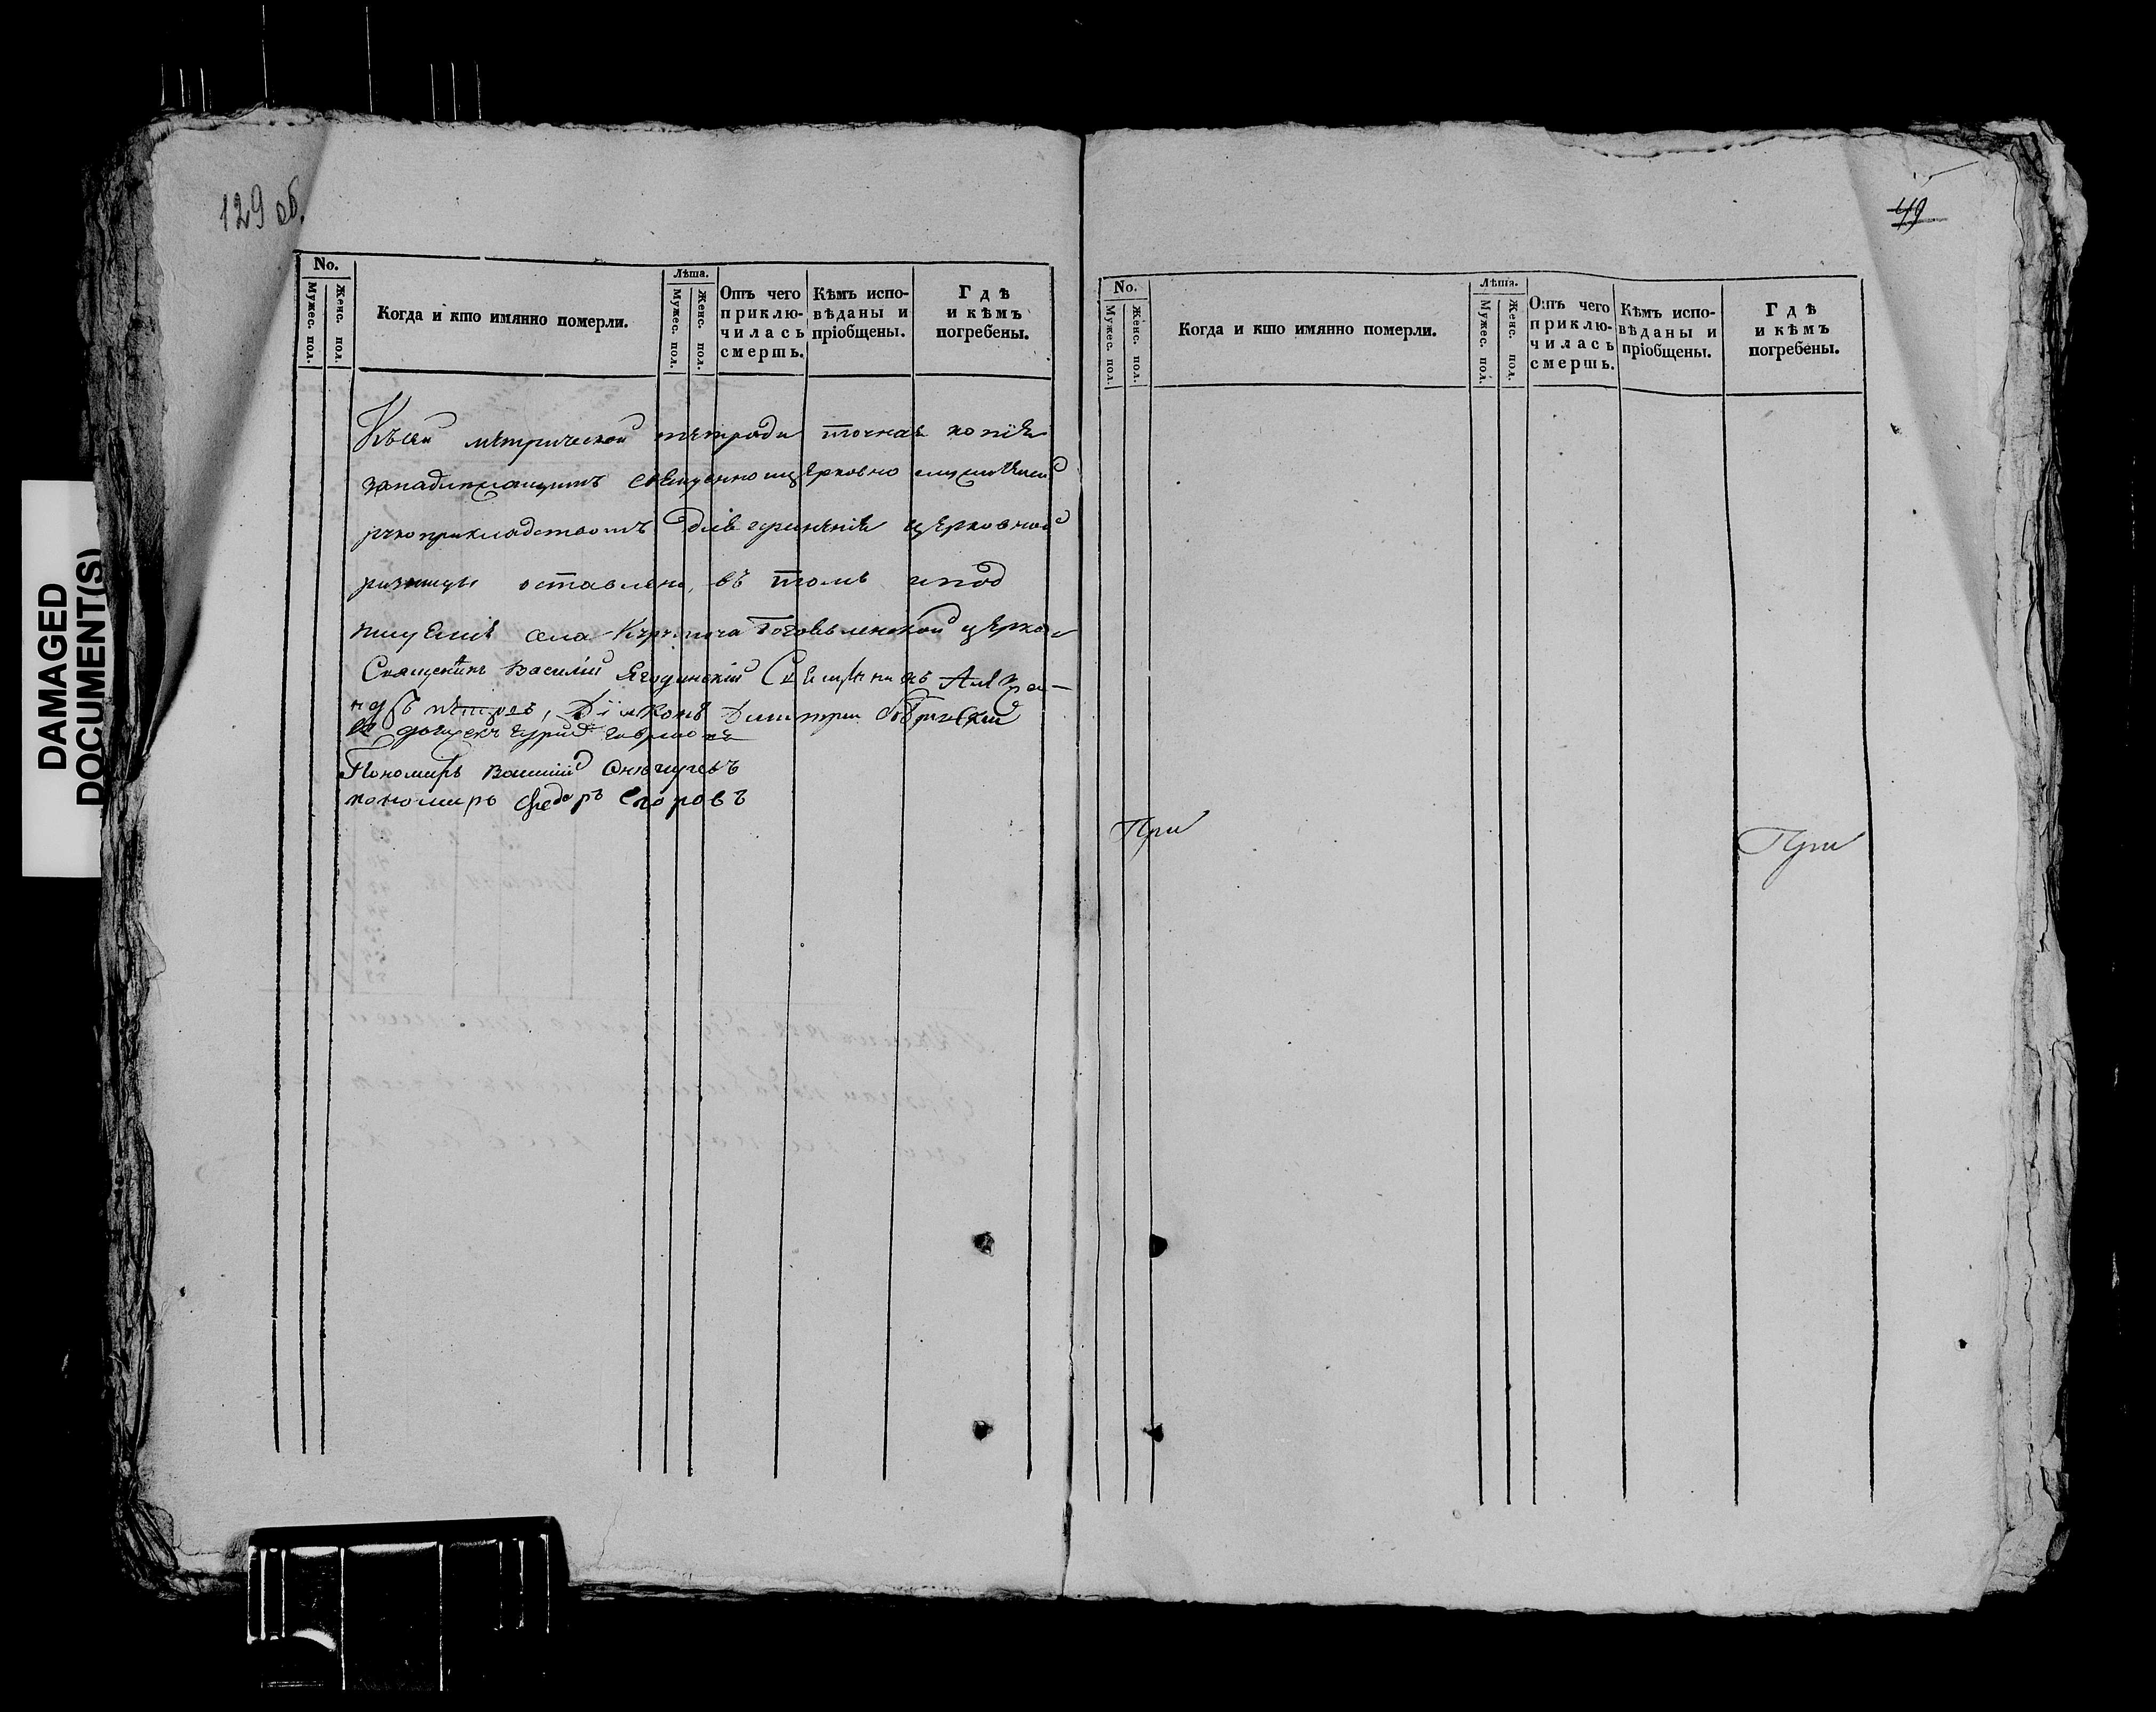 129 об.
No.
Мужес. пол.
Женс. пол.
Когда и кто имянно померли.
Лѣта.
Мужес. пол.
Женс. пол.
Отъ чего
приклю-
чилась
смерть.
Кѣмъ испо-
вѣданы и
пріобщены.
Гдѣ
и кѣмъ
погребены.
метрической тетради точная копія
за надлежащимъ священно церковно служителей
рукоприкладствомъ для храненія церковной
ризницы оставлена, въ томъ и под
села Богоявленской церкви
Священникъ Василій Ягодинскій Священникъ Алексан-
ндръ Петровъ, Діяконъ Димитрій
Пономарь Василій
пономарь Федоръ Егоровъ
49
No.
Мужес. пол.
Женс. пол.
Когда и кто имянно померли.
Лѣта.
Мужес. пол.
Женс. пол.
Отъ чего
приклю-
чилась
смерть.
Кѣмъ испо-
вѣданы и
пріобщены.
Гдѣ
и кѣмъ
погребены.
При
При
DAMAGED
DOCUMENT(S)